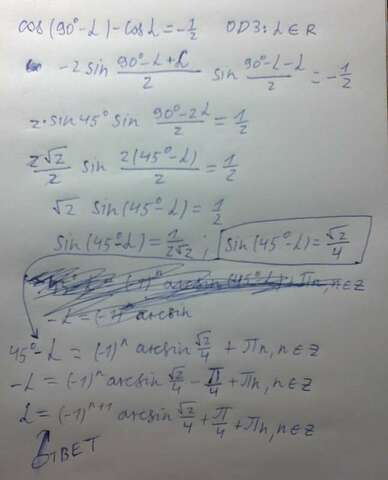 cos(90°-L)-cosL=-1/2 ОДЗ: L∈R
-2sin (90°-L+L)/2 sin (90°-L-L)/2 = -1/2
2·sin45° sin (90°-2L)/2 = 1/2
2√2/2 sin 2(45°-L)/2 = 1/2
√2 sin(45°-L) = 1/2
sin(45°-L) = 1/2√2 ; sin(45°-L) = √2/4
-L = (-1)ⁿ arcsin
45°-L = (-1)ⁿ arcsin √2/4 + πn, n∈Z
-L = (-1)ⁿ arcsin √2/4 - π/4 + πn, n∈Z
L = (-1)ⁿ⁺¹ arcsin √2/4 + π/4 + πn, n∈Z
ОТВЕТ